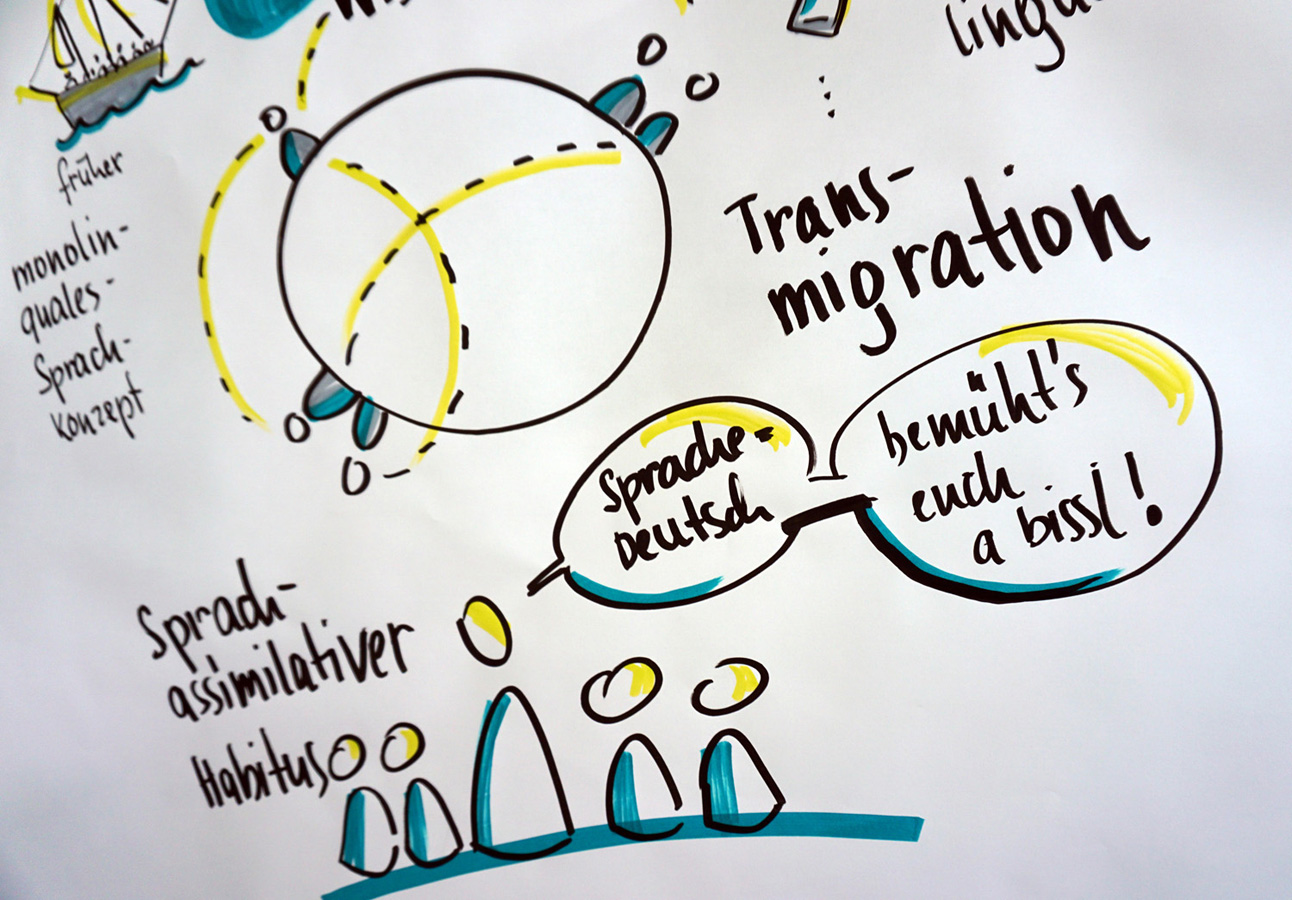 lingu
früher
monolin-
quales-
Sprach-
konzept
Trans-
migration
Sprache-
Deutsch
bemüht's
euch
a bissl!
Sprach-
assimilativer
Habitus